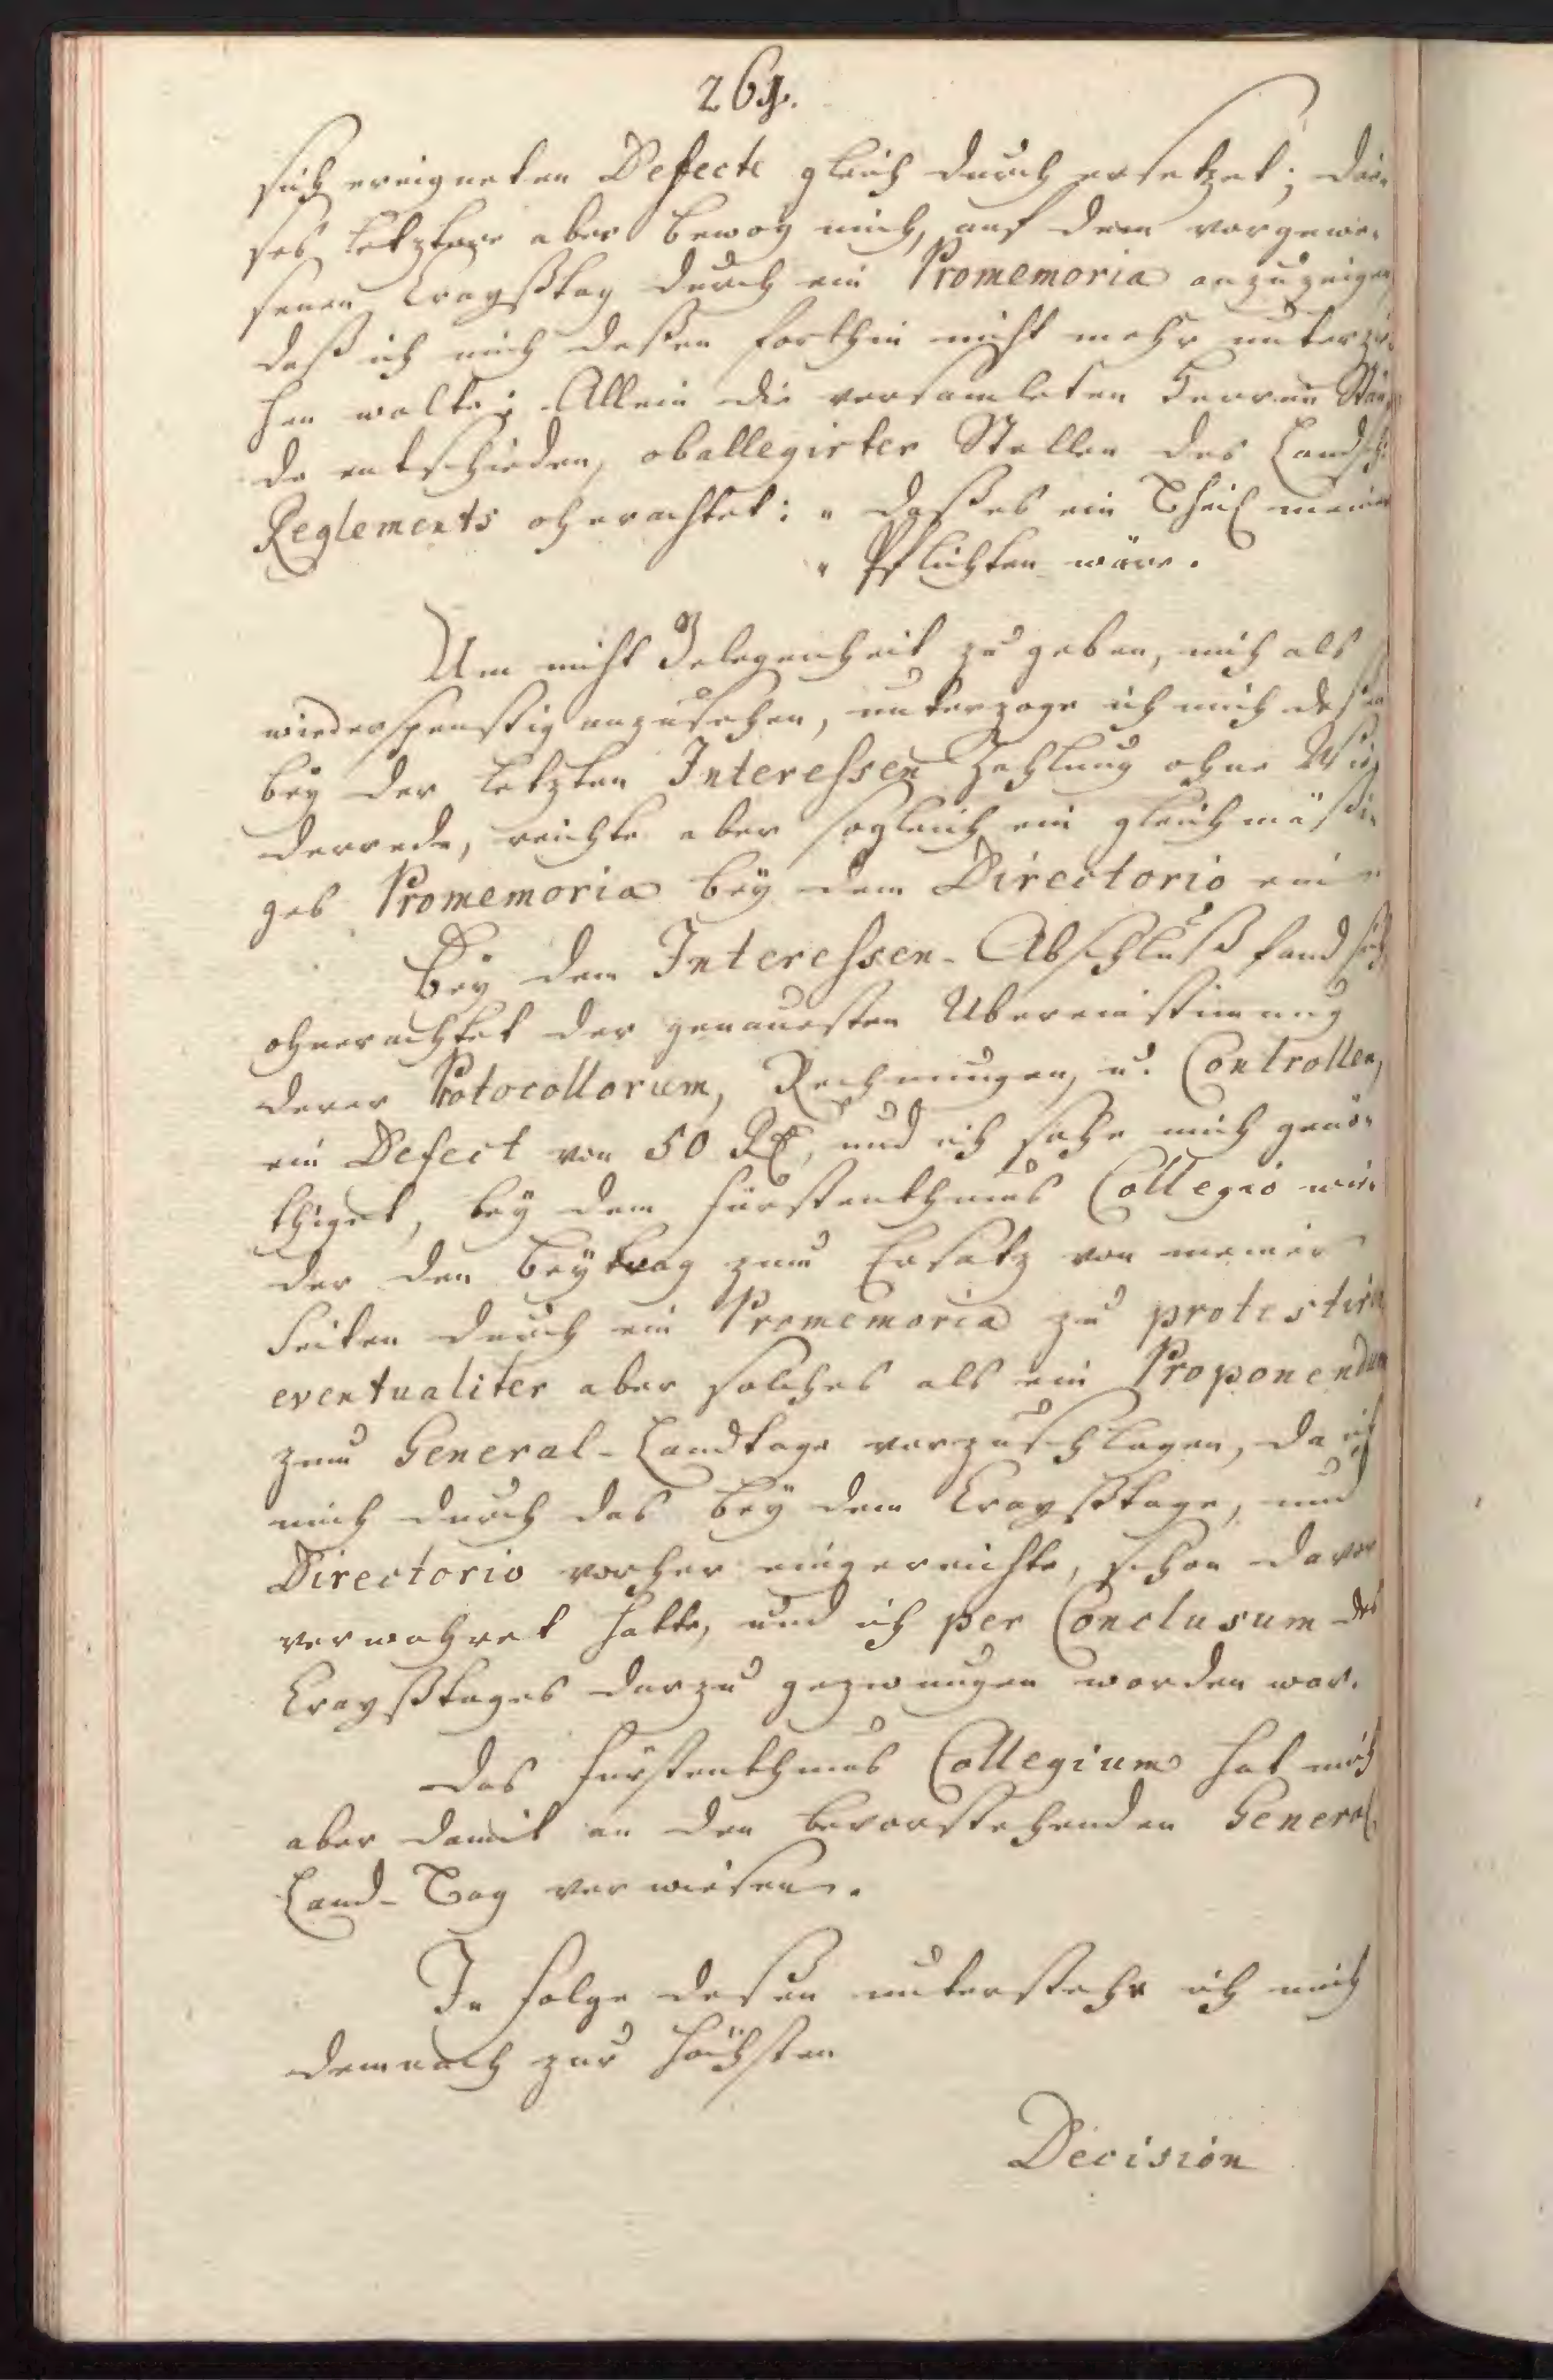 264.
sich ereigneten Defecte gleich durch ersetzet; die-
ses letztere aber bewog mich, auf dem vorgewe-
senen Crayßtag durch ein Promemoria anzuzeigen
daß ich mich deßen forthin nicht mehr unterzie-
hen wolte; Allein die versamleten Herren Stän-
de entschieden, oballegirter Stellen des Landsch:
Reglements oherachtet: „ daß es ein Theil meiner
„ Pflichten wäre.
Um nicht Gelegenheit zu geben, mich als
wiederspenstig anzusehen, unterzoge ich mich deßen
bey der letzten Interessen Zahlung ohne Wie-
derrede, reichte aber sogleich ein gleichmäßi-
ges Promemoria bey dem Directorio ein
Bey dem Interessen-Abschluß fand sich
ohnerachtet der genauesten Ubereinstimung
derer Protocollorum, Rechnungen, u. Controllen,
ein Defect von 50 Rth, und ich sahe mich genö-
thiget, bey dem Fürstenthums Collegio wie-
der den Beytrag zum Ersatz von meiner
Seiten durch ein Promemoria zu protestiren
eventualiter aber solches als ein Proponendum
zum General-Landtage vorzuschlagen, da ich
mich durch das bey dem Crayßtage, und
Directorio vorher eingereichte, schon davor
verwahret hatte, und ich per Conclusum des
Crayßtages darzu gezwungen worden war.
Das Fürstenthums Collegium hat mich
aber damit an den bevorstehenden General
Land-Tag verwiesen.
In Folge deßen unterstehe ich mich
demnach zur höchsten
Decision